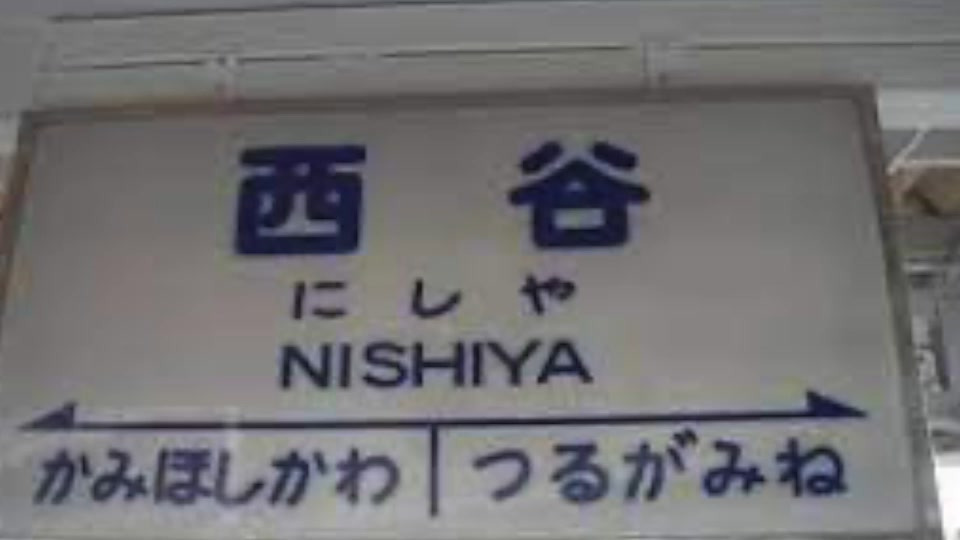 西谷
にしや
NISHIYA
かみほしかわ つるがみね